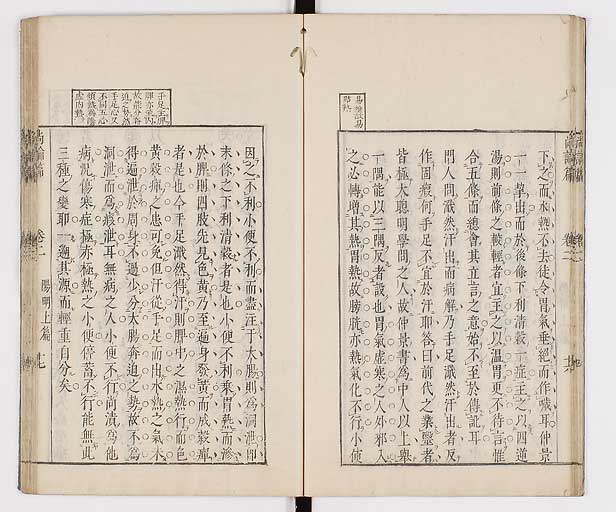 下之而水熱不去徒令胃氣垂絕而作噦耳仲景
一一挈出而於後條下利清穀一症主之以四逆
湯則前條之較輕者宜主之以溫胃更不待言惟
合五條而總會其立言之意始不至於傳訛耳
門人問濈然汗出而病解乃手足濈然汗出者反
作固瘕何手足不宜於汗耶答曰前代之業醫者
皆極大聰明學問之人故仲景書為中人以上舉
一隅能以三隅反者設也胃氣虛寒之人外邪入
之必轉增其熱胃熱故膀胱亦熱氣化不行小便
因之不利小便不利而盡注于大腸則為洞泄即
末條之下利清穀者是也小便不利乘胃熱而滲
於脾則四肢先見色黃乃至遍身發黃而成穀癉
者是也今手足濈然得汗則脾中之濕熱行而色
黃穀癉之患可免但汗從手足而出水熱之氣未
得遍泄於周身不過少分大腸奔迫之勢故不為
洞泄而為瘕泄耳無病之人小便不行尚漬為他
病況傷寒症極赤極熱之小便停蓄不行能無此
三種之變耶一遡其源而輕重自分矣
尚論篇
卷二
陽明上篇
十七